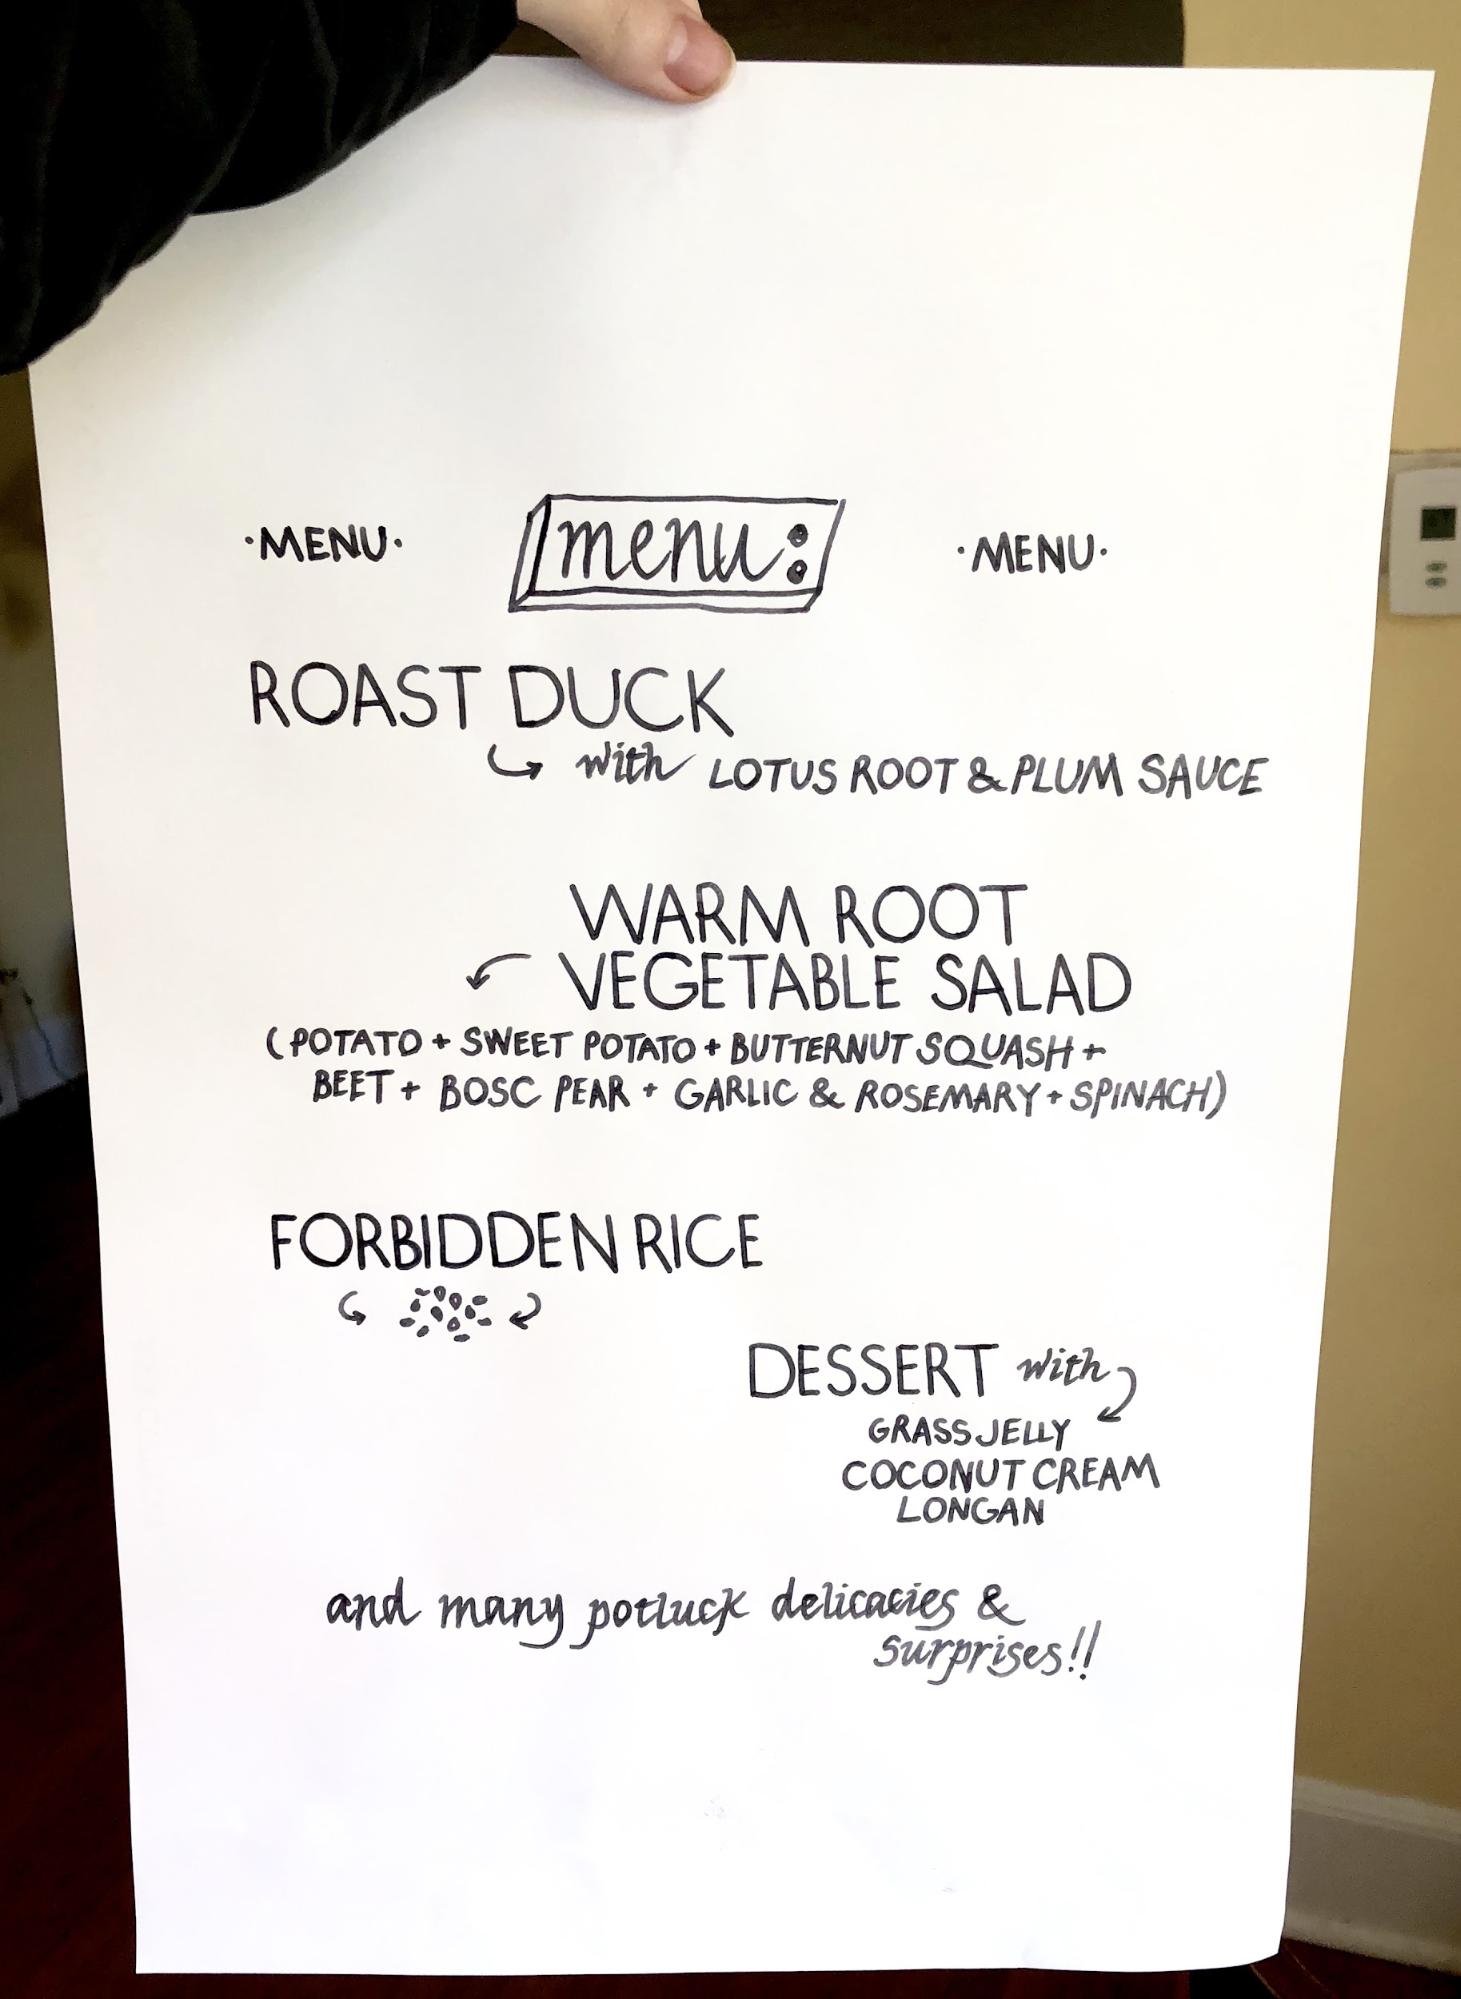 ·MENU· menu: ·MENU·
ROAST DUCK
with LOTUS ROOT & PLUM SAUCE
WARM ROOT
VEGETABLE SALAD
(POTATO + SWEET POTATO + BUTTERNUT SQUASH +
BEET + BOSC PEAR + GARLIC & ROSEMARY + SPINACH)
FORBIDDEN RICE
DESSERT with
GRASS JELLY
COCONUT CREAM
LONGAN
and many potluck delicacies &
surprises!!